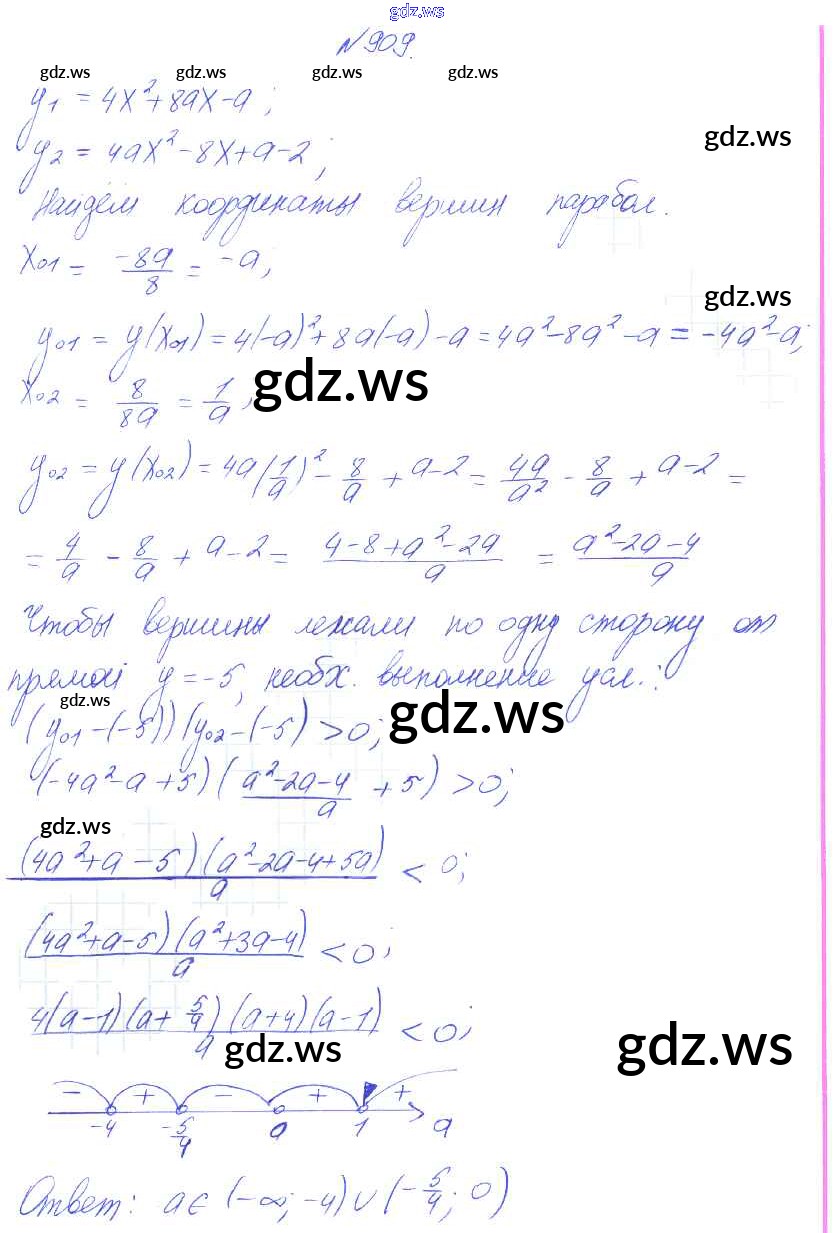 gdz.ws
N 909.
gdz.ws gdz.ws gdz.ws gdz.ws
y₁ = 4x² + 8ax - a ;
gdz.ws
y₂ = 4ax² - 8x + a - 2 ;
Найдём координаты вершин парабол.
x₀₁ = -8a/8 = -a;
gdz.ws
y₀₁ = y(x₀₁) = 4(-a)² + 8a(-a) - a = 4a² - 8a² - a = -4a² - a;
x₀₂ = 8/8a = 1/a ;
gdz.ws
y₀₂ = y(x₀₂) = 4a(1/a)² - 8/a + a - 2 = 4a/a² - 8/a + a - 2 =
= 4/a - 8/a + a - 2 = (4 - 8 + a² - 2a)/a = (a² - 2a - 4)/a
Чтобы вершины лежали по одну сторону от
прямой y = -5, необх. выполнение усл.:
gdz.ws gdz.ws
(y₀₁ - (-5)) (y₀₂ - (-5) > 0;
(-4a² - a + 5) ( (a² - 2a - 4)/a + 5) > 0;
gdz.ws
(4a² + a - 5) (a² - 2a - 4 + 5a)/a < 0;
(4a² + a - 5) (a² + 3a - 4)/a < 0;
4(a - 1) (a + 5/4) (a + 4) (a - 1)/a < 0;
gdz.ws gdz.ws
- + - + +
-4 -5/4 0 1 a
Ответ: a ∈ (-∞; -4) ∪ (-5/4; 0)